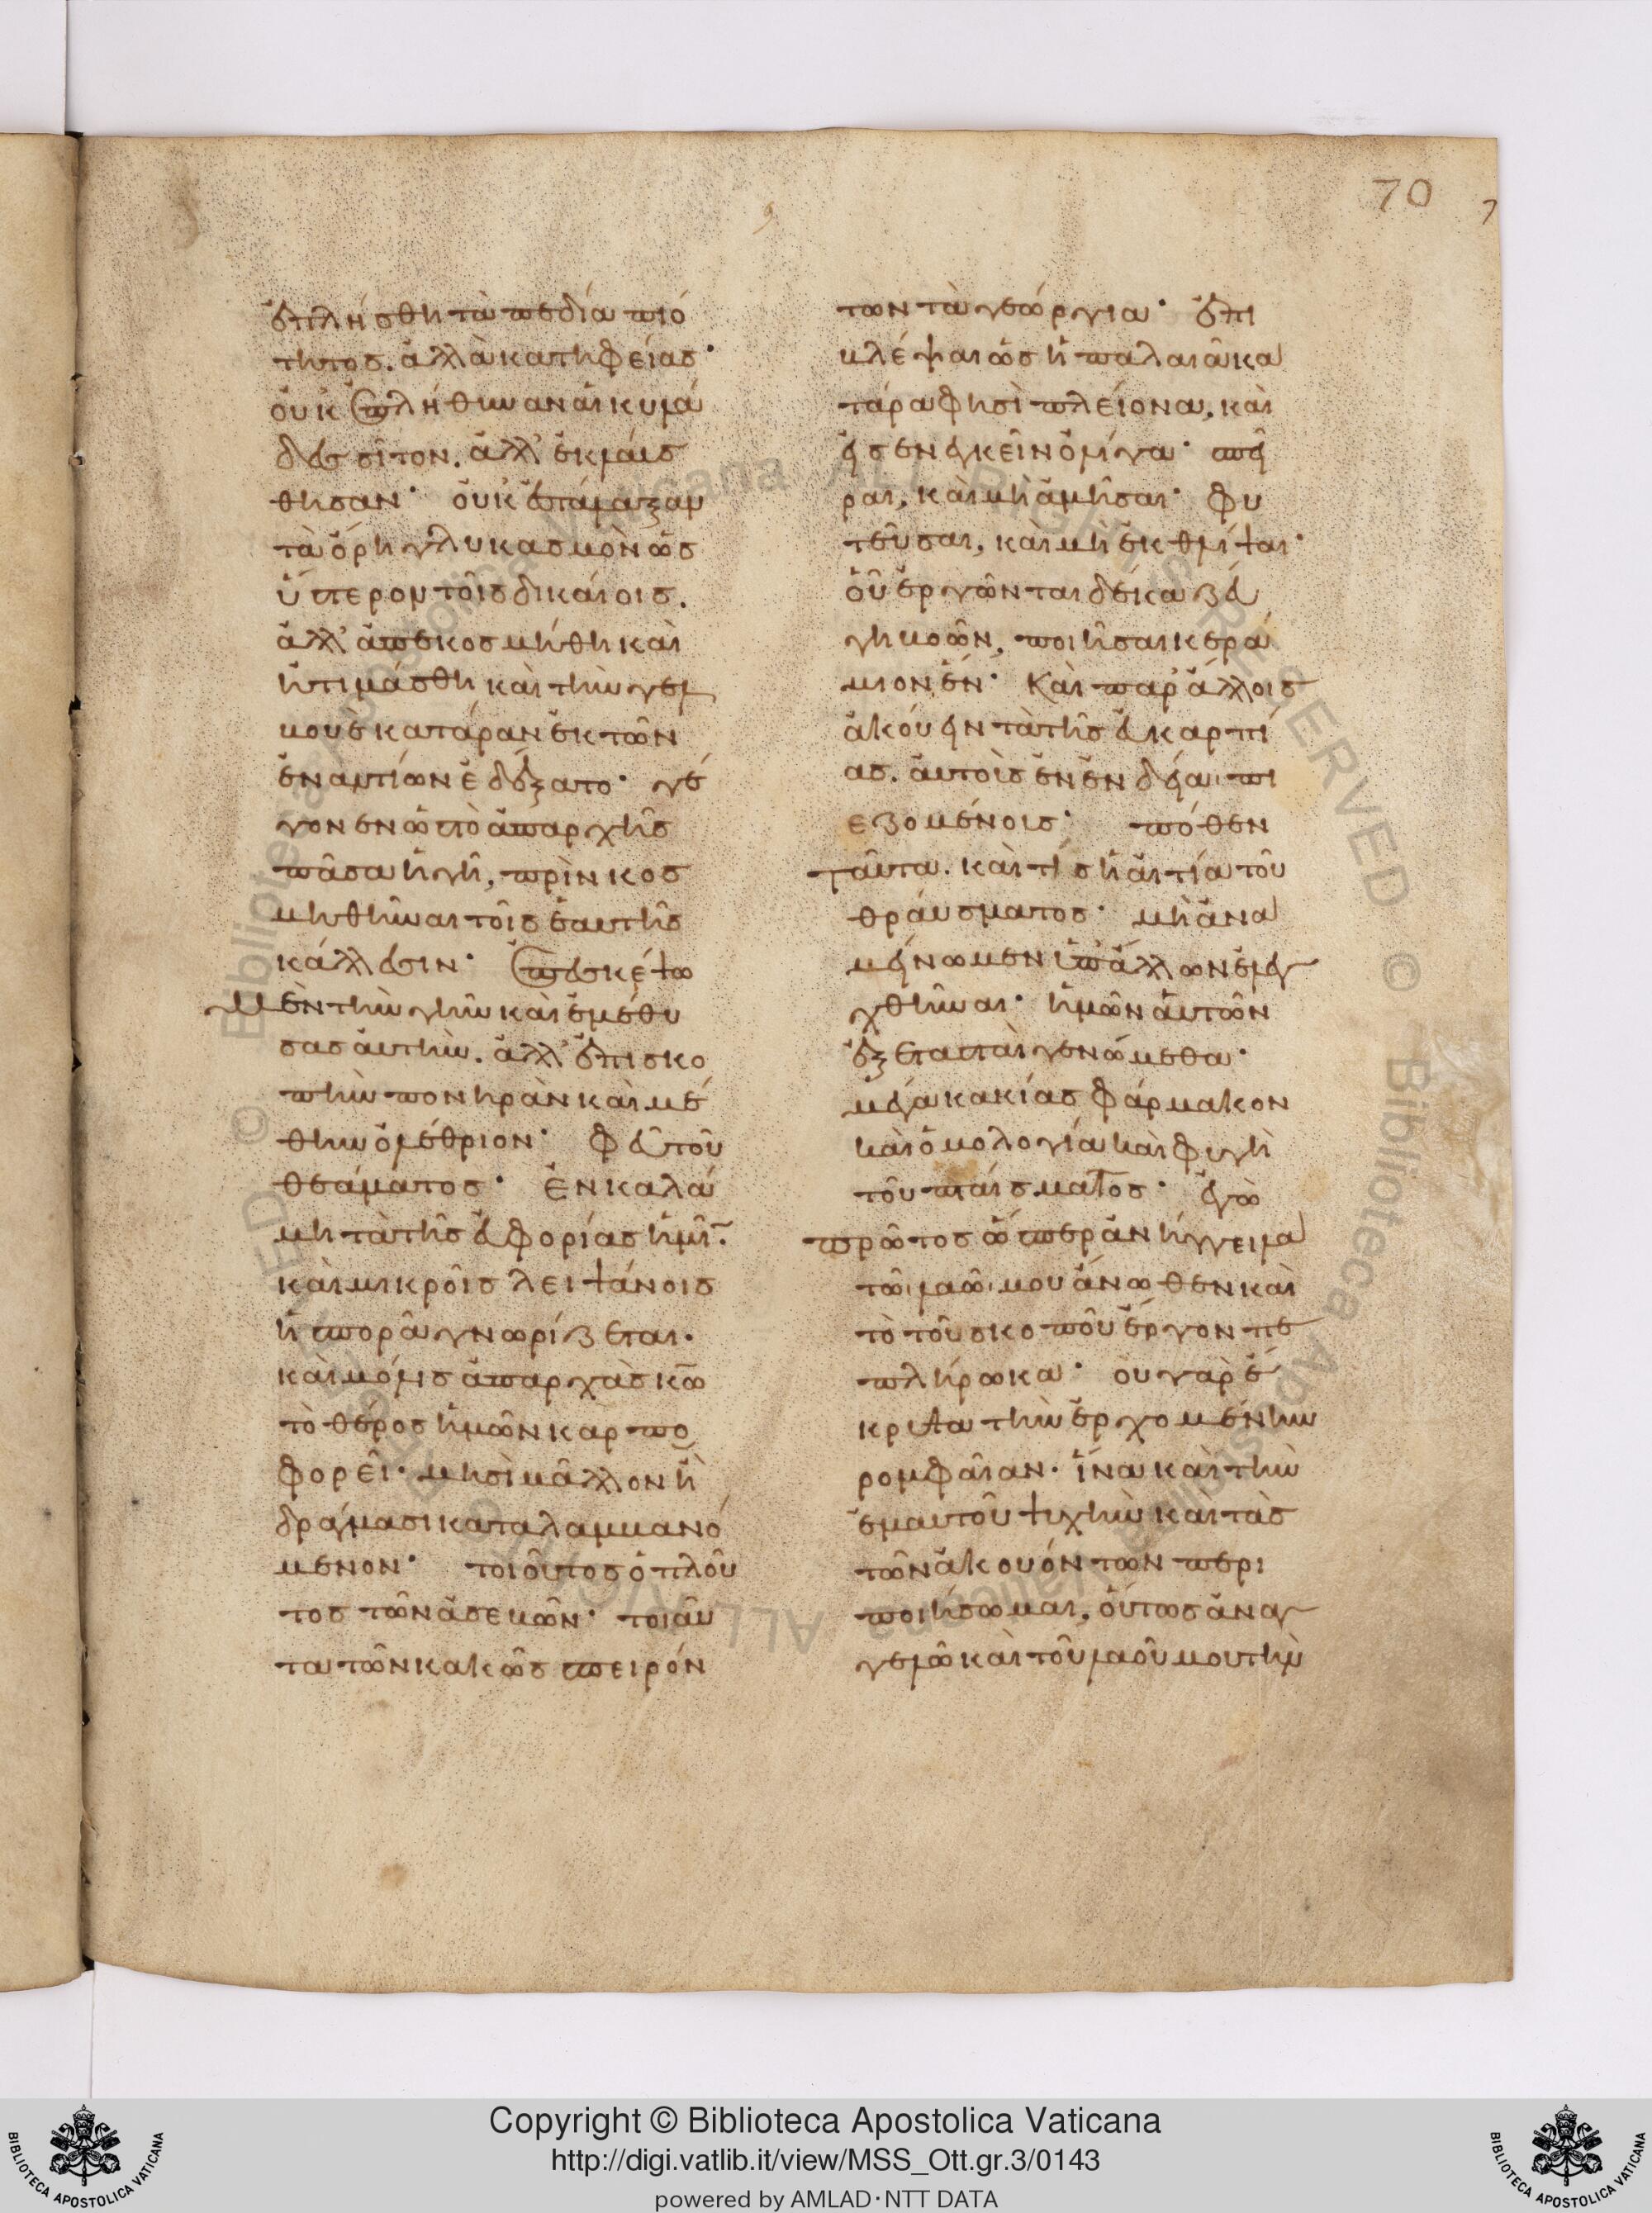 70
ἐπλήσθη τὰ πεδία πιό
τητος. ἀλλὰ κατηφείας·
οὐκ ἐπλήθυναν αἱ κοιλά
δες σῖτον. ἀλλ' ἐκλαύσ
θησαν· οὐκ ἐστάλαξαν
τὰ ὄρη γλυκασμὸν ὡς
ὕστερον τοῖς δικαίοις.
ἀλλ' ἀπεκοσμήθη καὶ
ἠτιμάσθη καὶ τὴν γελ
βουὲ κατάραν ἐκ τῶν
ἐναντίων ἐδέξατο· γέ
γονεν ὡς τὸ ἀπαρχῆς
πᾶσα ἡ γῆ, πρὶν κοσ
μηθῆναι τοῖς ἑαυτῆς
κάλλεσιν· ἐπεσκέψω
μὲν τὴν γῆν καὶ ἐμέθυ
σας αὐτὴν. ἀλλ' ἐπισκο
πὴν πονηρὰν καὶ μέ
θην ὀλέθριον· φεῦ τοῦ
θεάματος· ἐν καλά
μη τὰ τῆς εὐφορίας ἡμῖ̄.
καὶ μικροῖς λειψάνοις
ἡ σπορὰ γνωρίζεται.
καὶ μόλις ἀπαρχὰς κ̄ω̄
τὸ θέρος ἡμῶν καρπο
φορεῖ· μησὶ μᾶλλον ἢ
δράγμασι καταλαμβανό
μενον· τοιοῦτος ὁ πλοῦ
τος τῶν ἀσεβῶν· τοιαῦ
τα τῶν κακῶς σπειρόν
των τὰ γεώργια· ἐπι
βλέψαι ὡς ἡ παλαιὰ κα
τάρα φησὶ πλείονα, καὶ
εἰσενεγκεῖν ὀλίγα· σπεῖ
ραι, καὶ μὴ ἀμῆσαι· φυ
τεῦσαι, καὶ μὴ ἐκθλίψαι·
οὗ ἐργῶνται δέκα ζεύ
γη βοῶν, ποιῆσαι κερά
μιον ἕν· Καὶ παρ' ἄλλοις
ἀκούειν τὰ τῆς εὐκαρπί
ας. αὐτοὶς ἐν ἐνδείαι πι
εζομένοις· πόθεν
ταῦτα. καὶ τίς ἡ αἰτία τοῦ
θραύσματος· μὴ ἀνα
μείνωμεν ὑπ' ἄλλων ἐλεγ
χθῆναι· ἡμῶν αὐτῶν
ἐξετασταὶ γενώμεθα·
μέγα κακίας φάρμακον
καὶ ὁμολογία καὶ φυγὴ
τοῦ πταίσματος· ἐγὼ
πρῶτος ὥσπερ ἀνήγγειλα
τῶι λαῶι μου ἄνωθεν καὶ
τὸ τοῦ σκοποῦ ἔργον πε
πλήρωκα· οὐ γὰρ ἔ
κρυψα τὴν ἐρχομένην
ρομφαίαν. ἵνα καὶ τὴν
ἐμαυτοῦ ψυχὴν καὶ τὰς
τῶν ἀκουόντων περι
ποιήσωμαι, οὕτως ἀναγ
γελῶ καὶ τοῦ λαοῦ μου τὴν
Copyright © Biblioteca Apostolica Vaticana
http://digi.vatlib.it/view/MSS_Ott.gr.3/0143
powered by AMLAD·NTT DATA
BIBLIOTECA APOSTOLICA VATICANA
BIBLIOTECA APOSTOLICA VATICANA